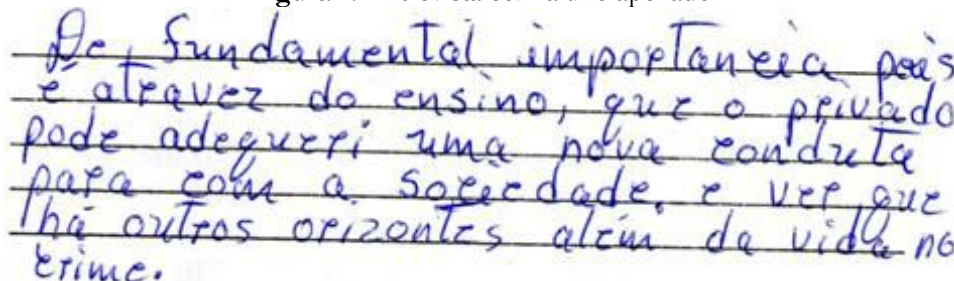 De fundamental importancia pois
é atravez do ensino, que o privado
pode adequeri uma nova conduta
para com a sociedade. e ver que
há outros orizontes além da vida no
crime.